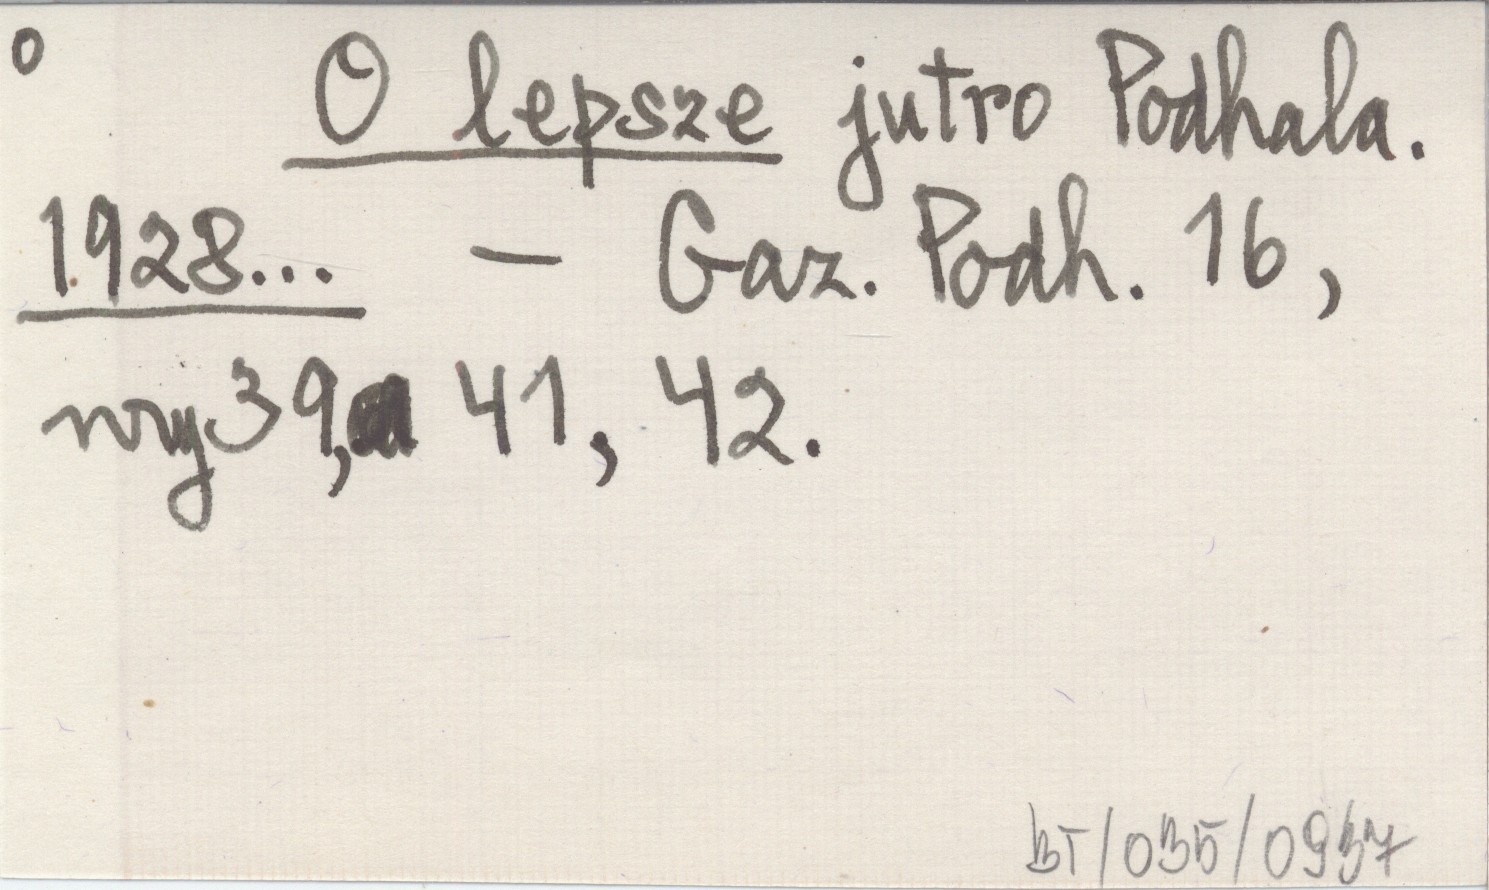 o
O lepsze jutro Podhala.
1928... – Gaz. Podh. 16,
nry 39, 41, 42.
BT/035/0937